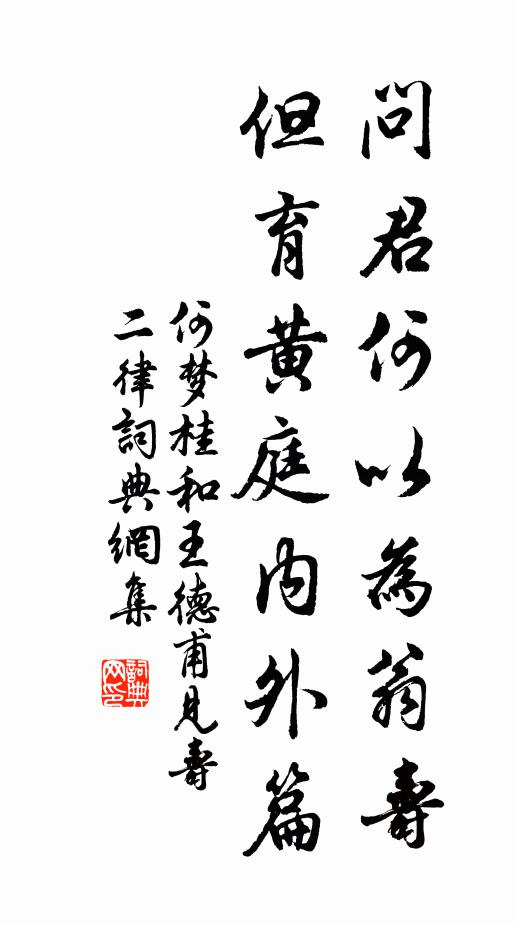 問君何以為翁壽
但育黃庭內外篇
何梦桂和王德甫見壽
二律詞典網集
詞典网印